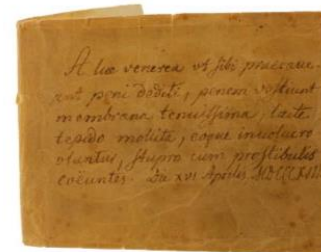 A luæ venerea vt sibi praecave-
ant peni dediti, penem vestiunt
membrana tenuissima, lacte
tepido mollite, eoque involucro
stupro cum prostibulis
coëuntes. Da XVI Aprilis